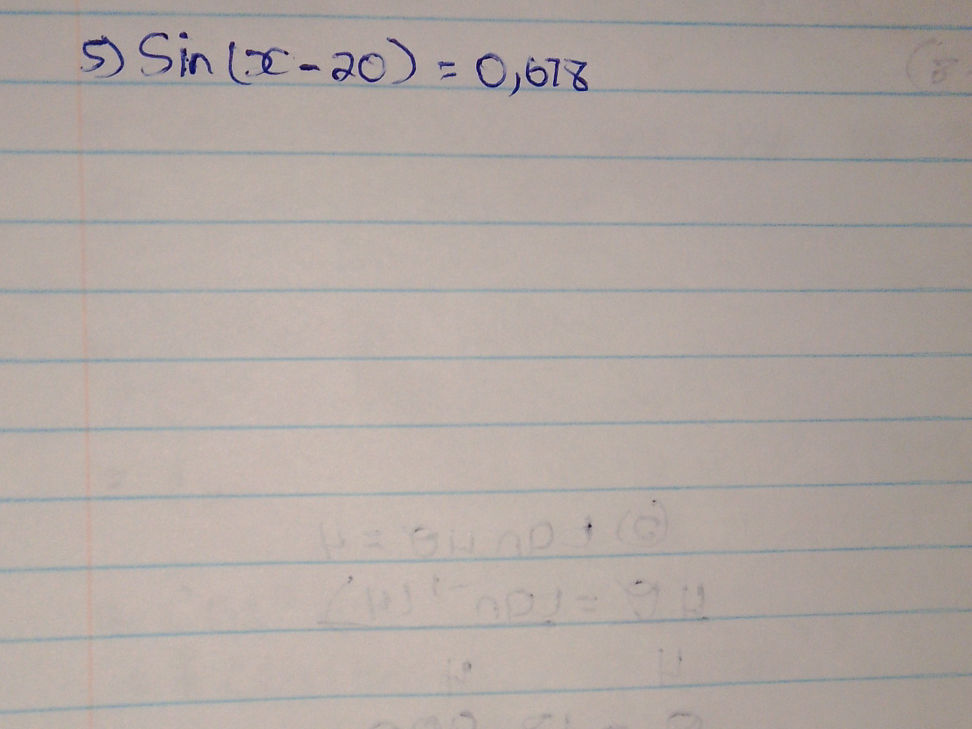 5) Sin(x-20) = 0,678